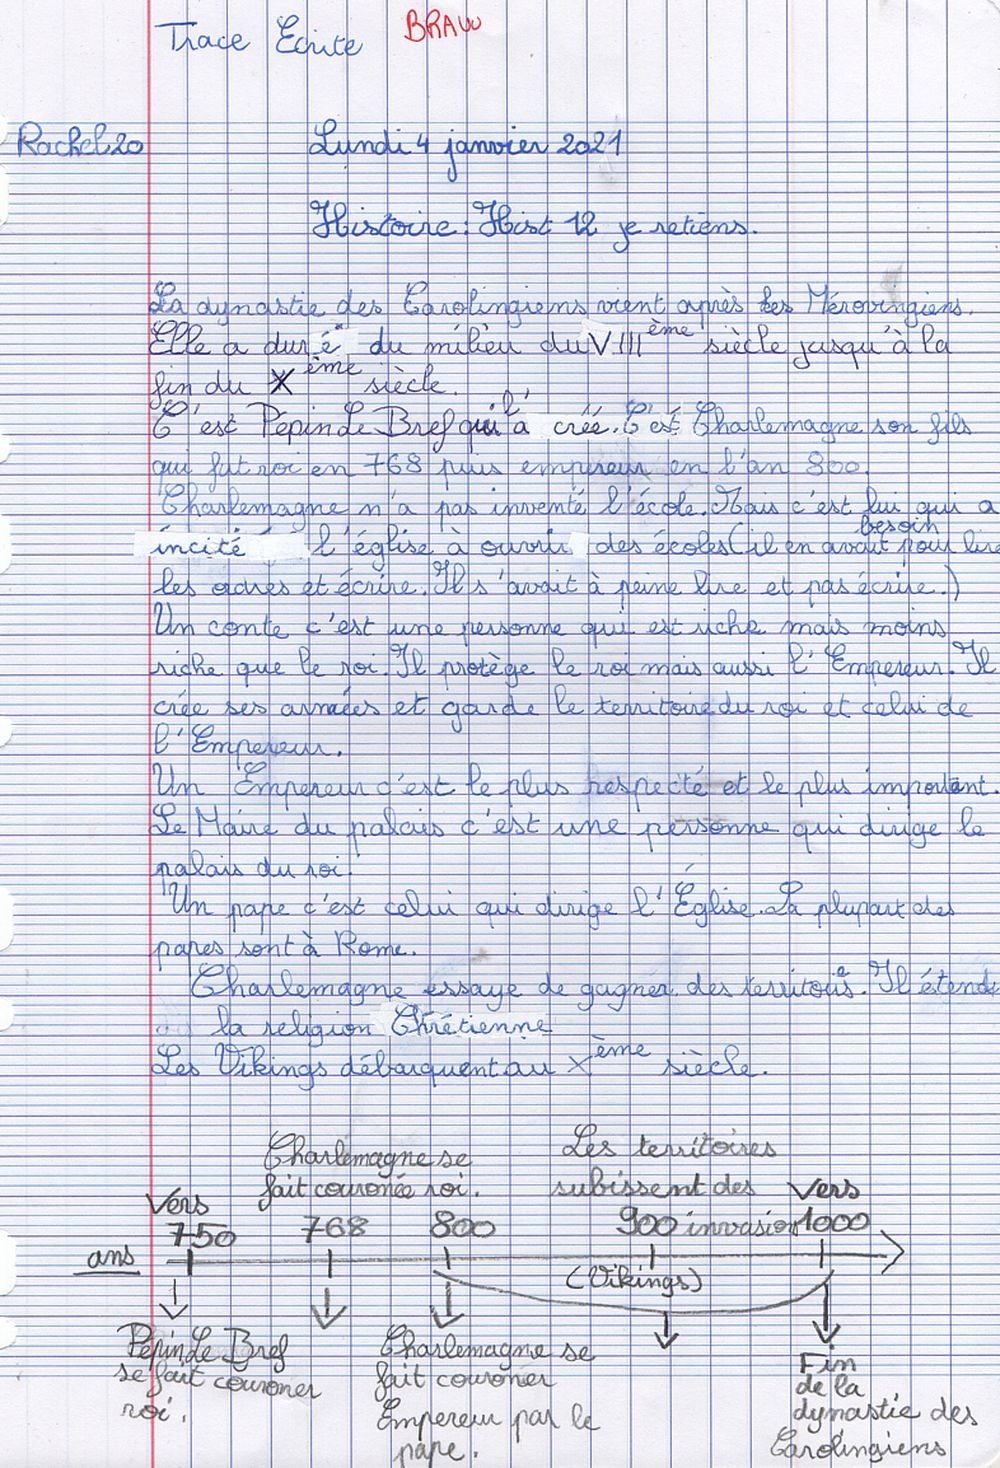 Trace Ecrite
BRAVO
Rachel 20
Lundi 4 janvier 2021
Histoire : Hist 12 je retiens.
La dynastie des Carolingiens vient après les Mérovingiens.
Elle a duré du milieu du VIIIème siècle jusqu'à la
fin du Xème siècle.
C'est Pépin Le Bref qui l'a créé. C'est Charlemagne son fils
qui fut roi en 768 puis empereur en l'an 800.
Charlemagne n'a pas inventé l'école. Mais c'est lui qui a
incité l'église à ouvrir des écoles (il en avait besoin pour lire
les odres et écrire. Il s'avait à peine lire et pas écrire.)
Un conte c'est une personne qui est riche mais moins
riche que le roi. Il protège le roi mais aussi l'Empereur. Il
crée ses armées et garde le territoire du roi et celui de
l'Empereur.
Un Empereur c'est le plus respecté et le plus important.
Le Maire du palais c'est une personne qui dirige le
palais du roi.
Un pape c'est celui qui dirige l'Église. La plupart des
papes sont à Rome.
Charlemagne essaye de gagner des territoirs. Il étend
la religion Chrétienne
Les Vikings débarquent au Xème siècle.
Charlemagne se
fait couronée roi.
Les territoires
subissent des
invasion
Vers
750
768
800
900
Vers
1000
ans
(Vikings)
Pépin Le Bref
se fait couroner
roi.
Charlemagne se
fait couroner
Empereur par le
pape.
Fin
de la
dynastie des
Carolingiens